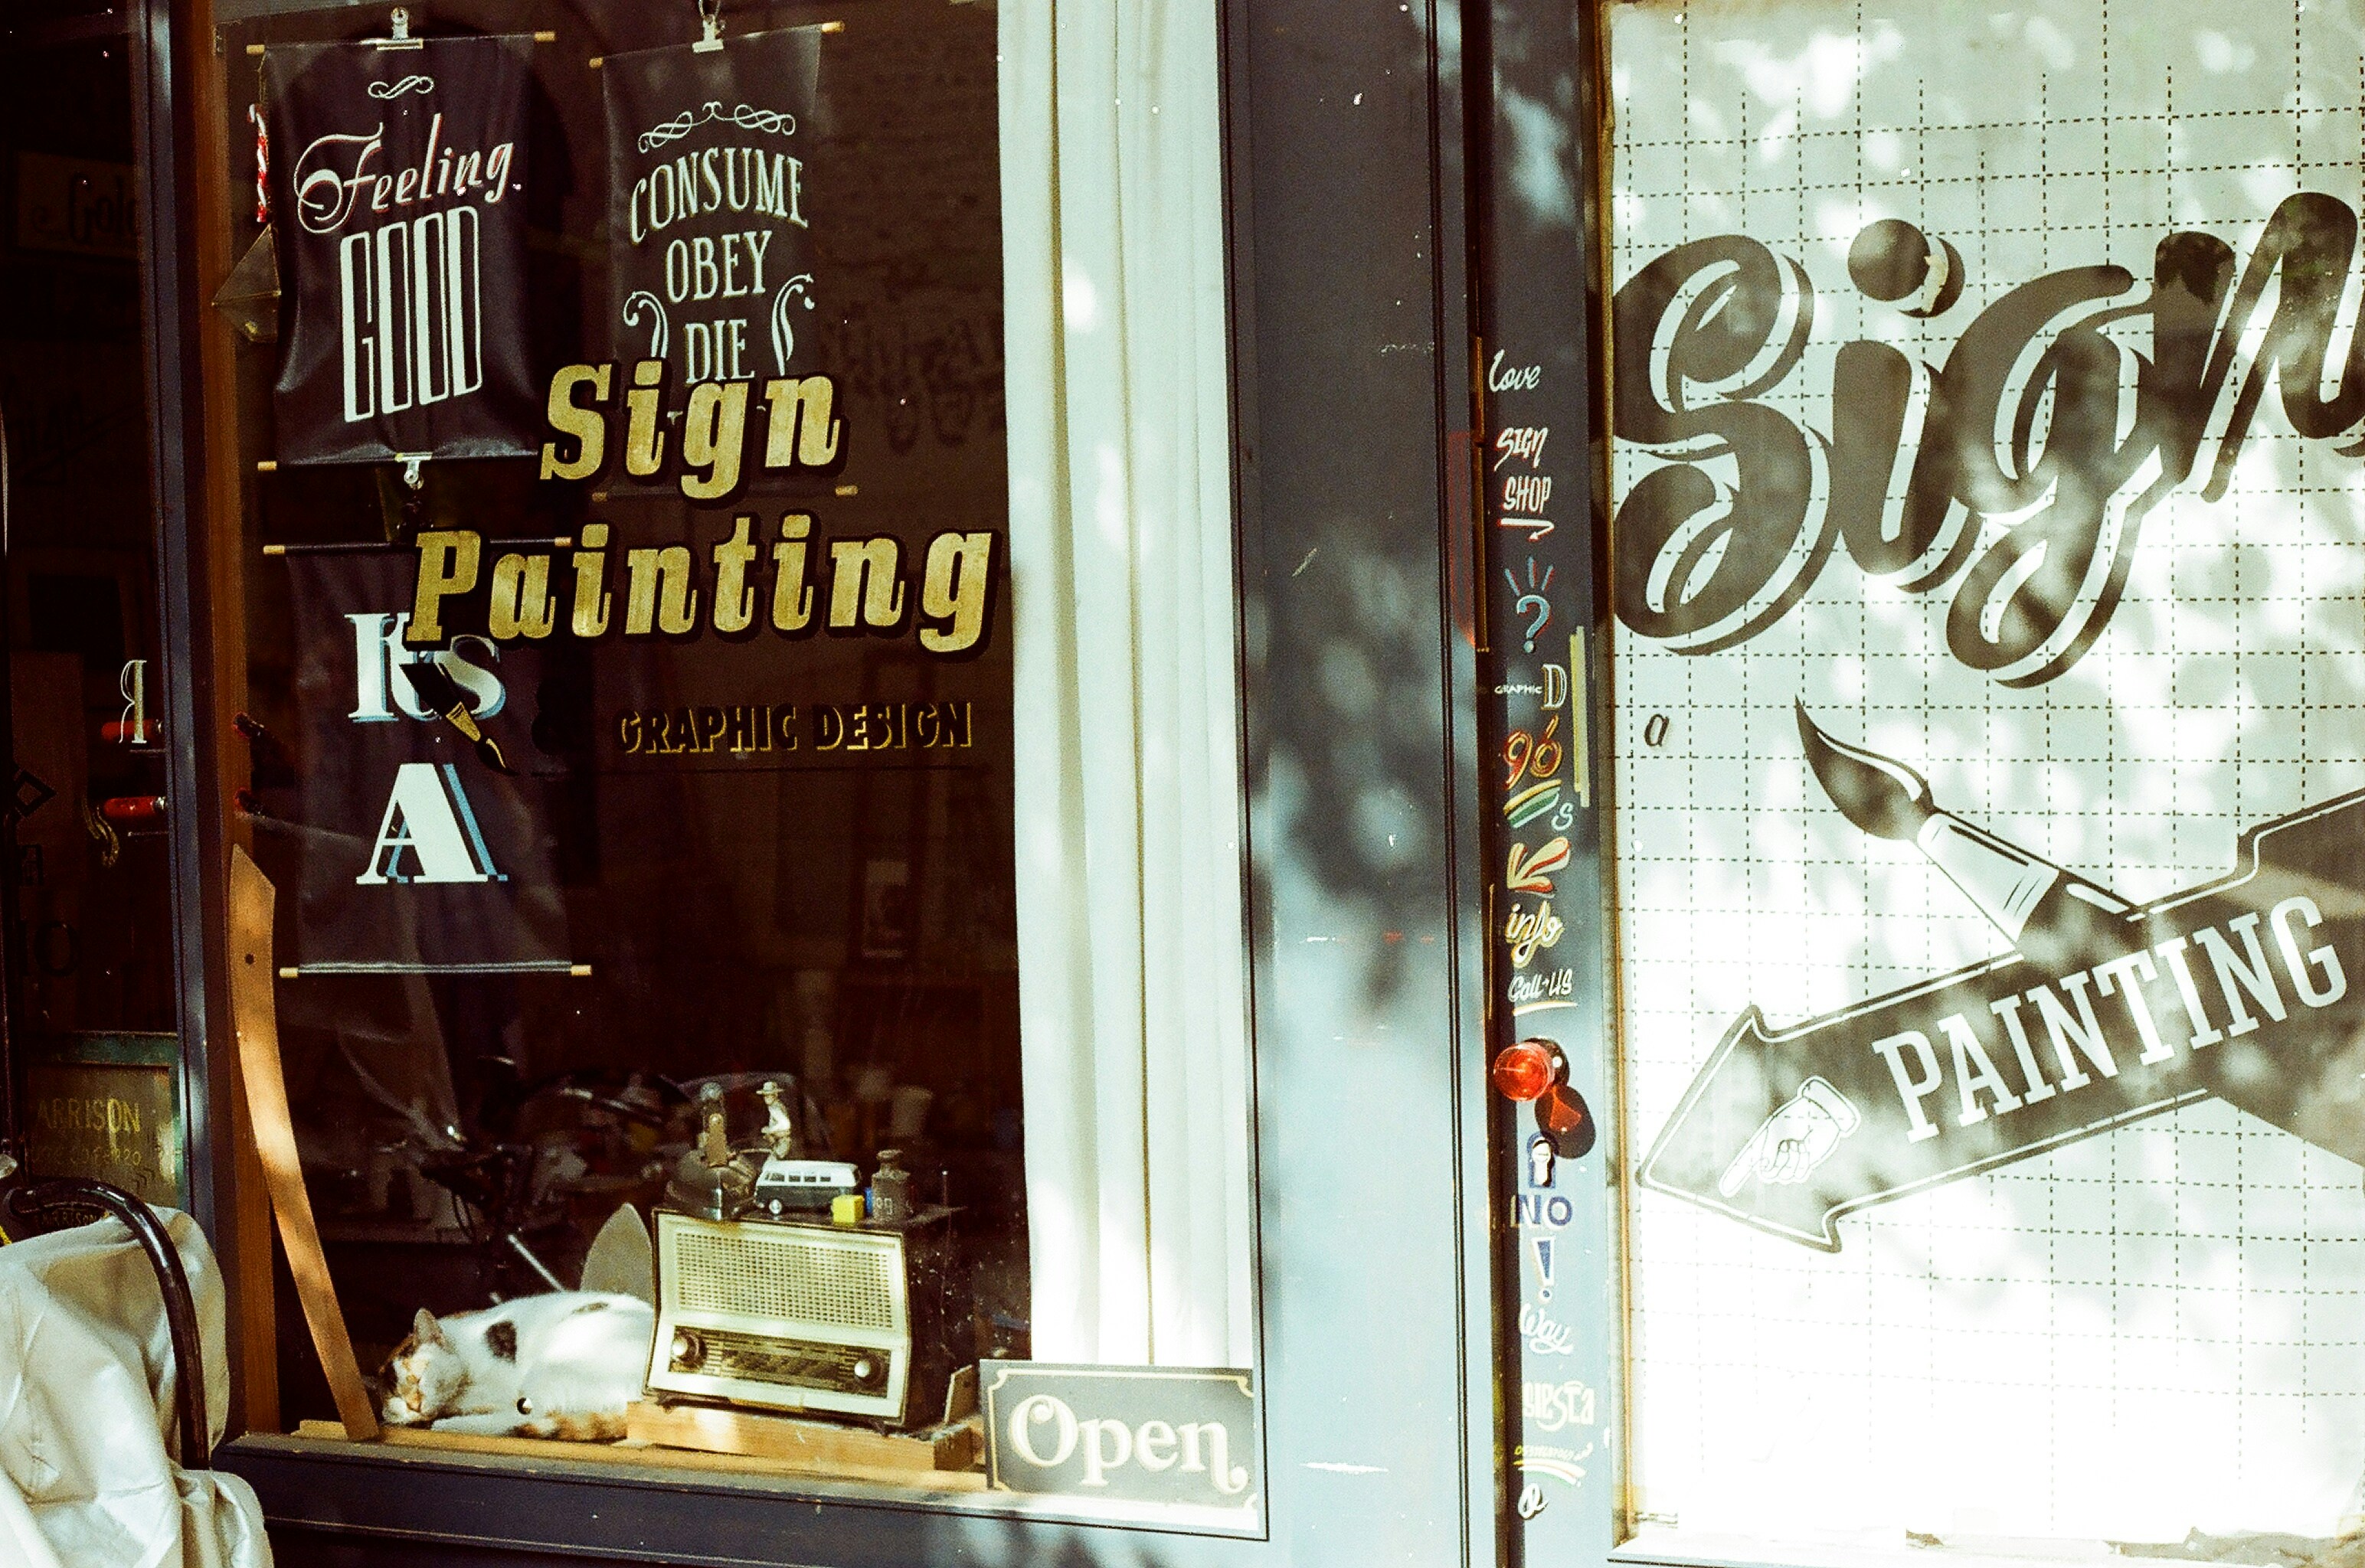 Feeling
GOOD
CONSUME
OBEY
DIE
Sign
Painting
GRAPHIC DESIGN
Ks
A
R
ARRISON
Open
love
SIGN
SHOP
?
GRAPHIC D
96
s
K
info
Call US
NO
!
Way
SIESTA
a
Sign
a
PAINTING